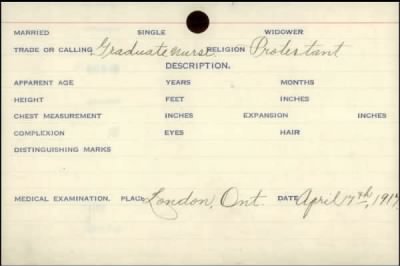 MARRIED SINGLE WIDOWER
TRADE OR CALLING Graduate nurse RELIGION Protestant
DESCRIPTION.
APPARENT AGE YEARS MONTHS
HEIGHT FEET INCHES
CHEST MEASUREMENT INCHES EXPANSION INCHES
COMPLEXION EYES HAIR
DISTINGUISHING MARKS
MEDICAL EXAMINATION. PLACE London, Ont. DATE April 17th, 1917